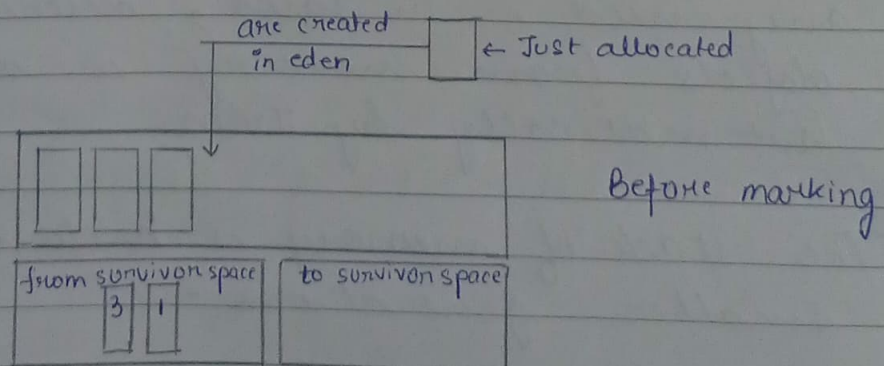 are created
in eden
← Just allocated
Before marking
from survivor space
to survivor space
3 1